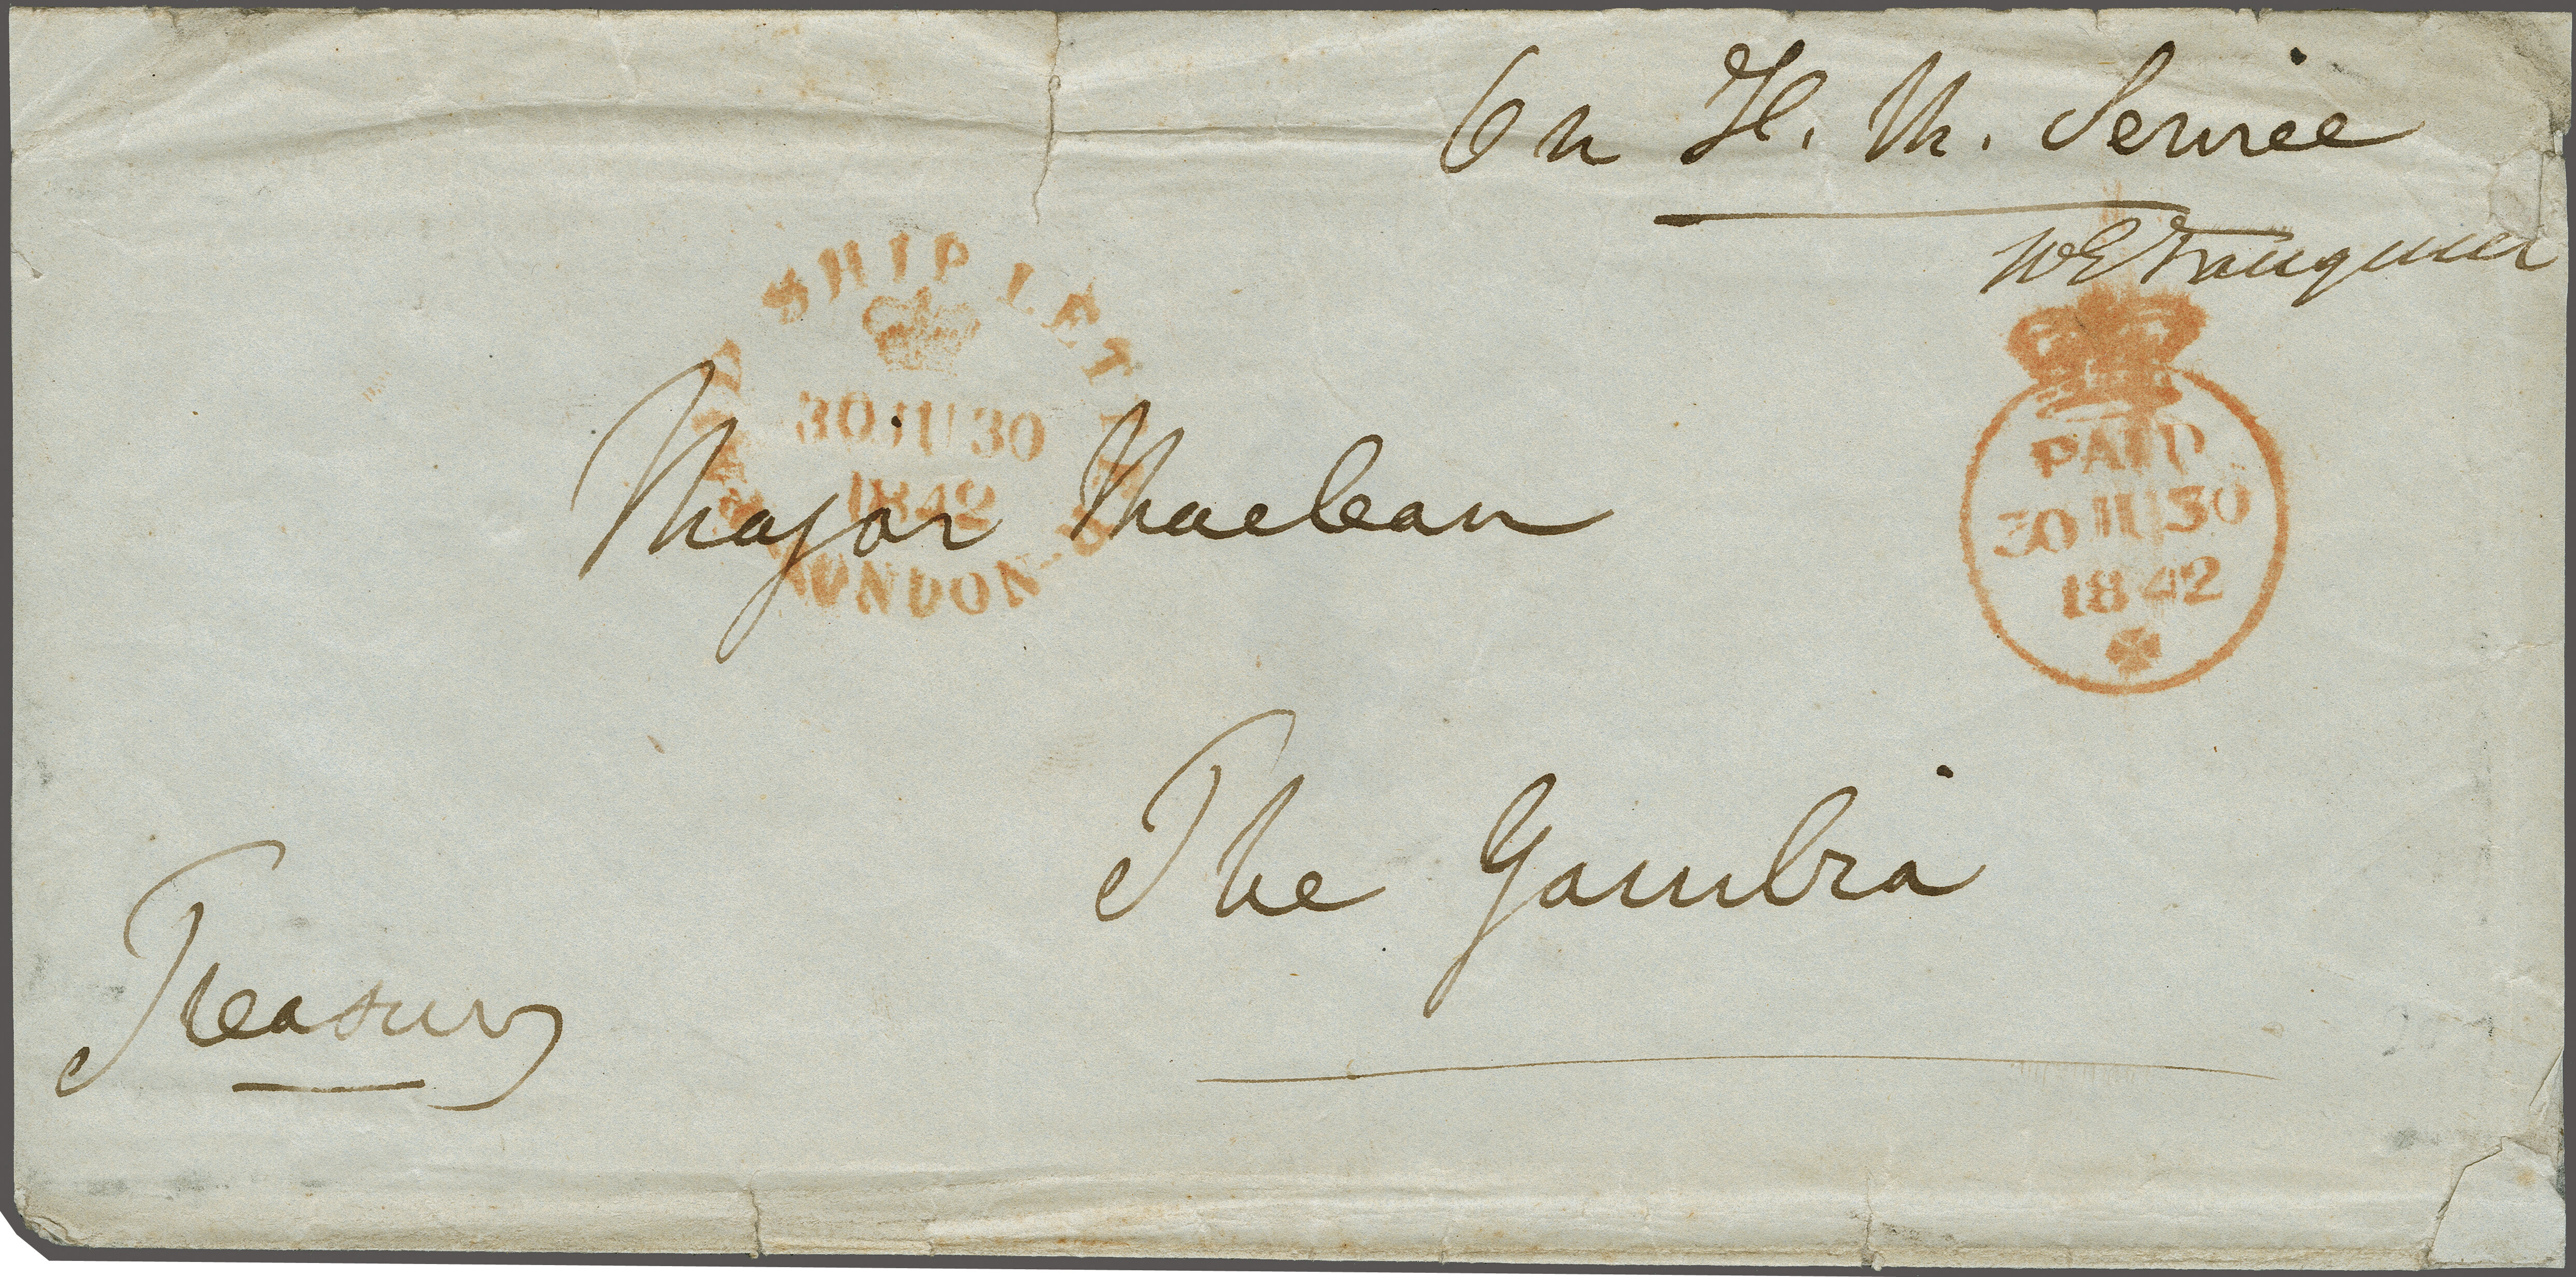 On H. M. Service
SHIP LETTER
30 JU 30
1842
LONDON
PAID
30 JU 30
1842
Major Maclean
The Gambia
Treasury